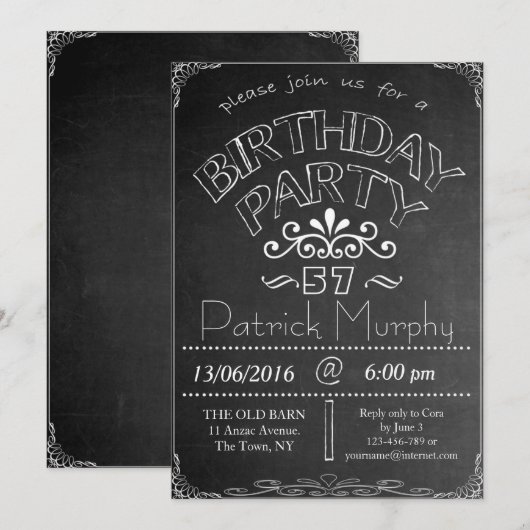 please join us for a
BIRTHDAY
PARTY
57
Patrick Murphy
13/06/2016 @ 6:00 pm
THE OLD BARN
11 Anzac Avenue.
The Town, NY
Reply only to Cora
by June 3
123-456-789 or
yourname@internet.com